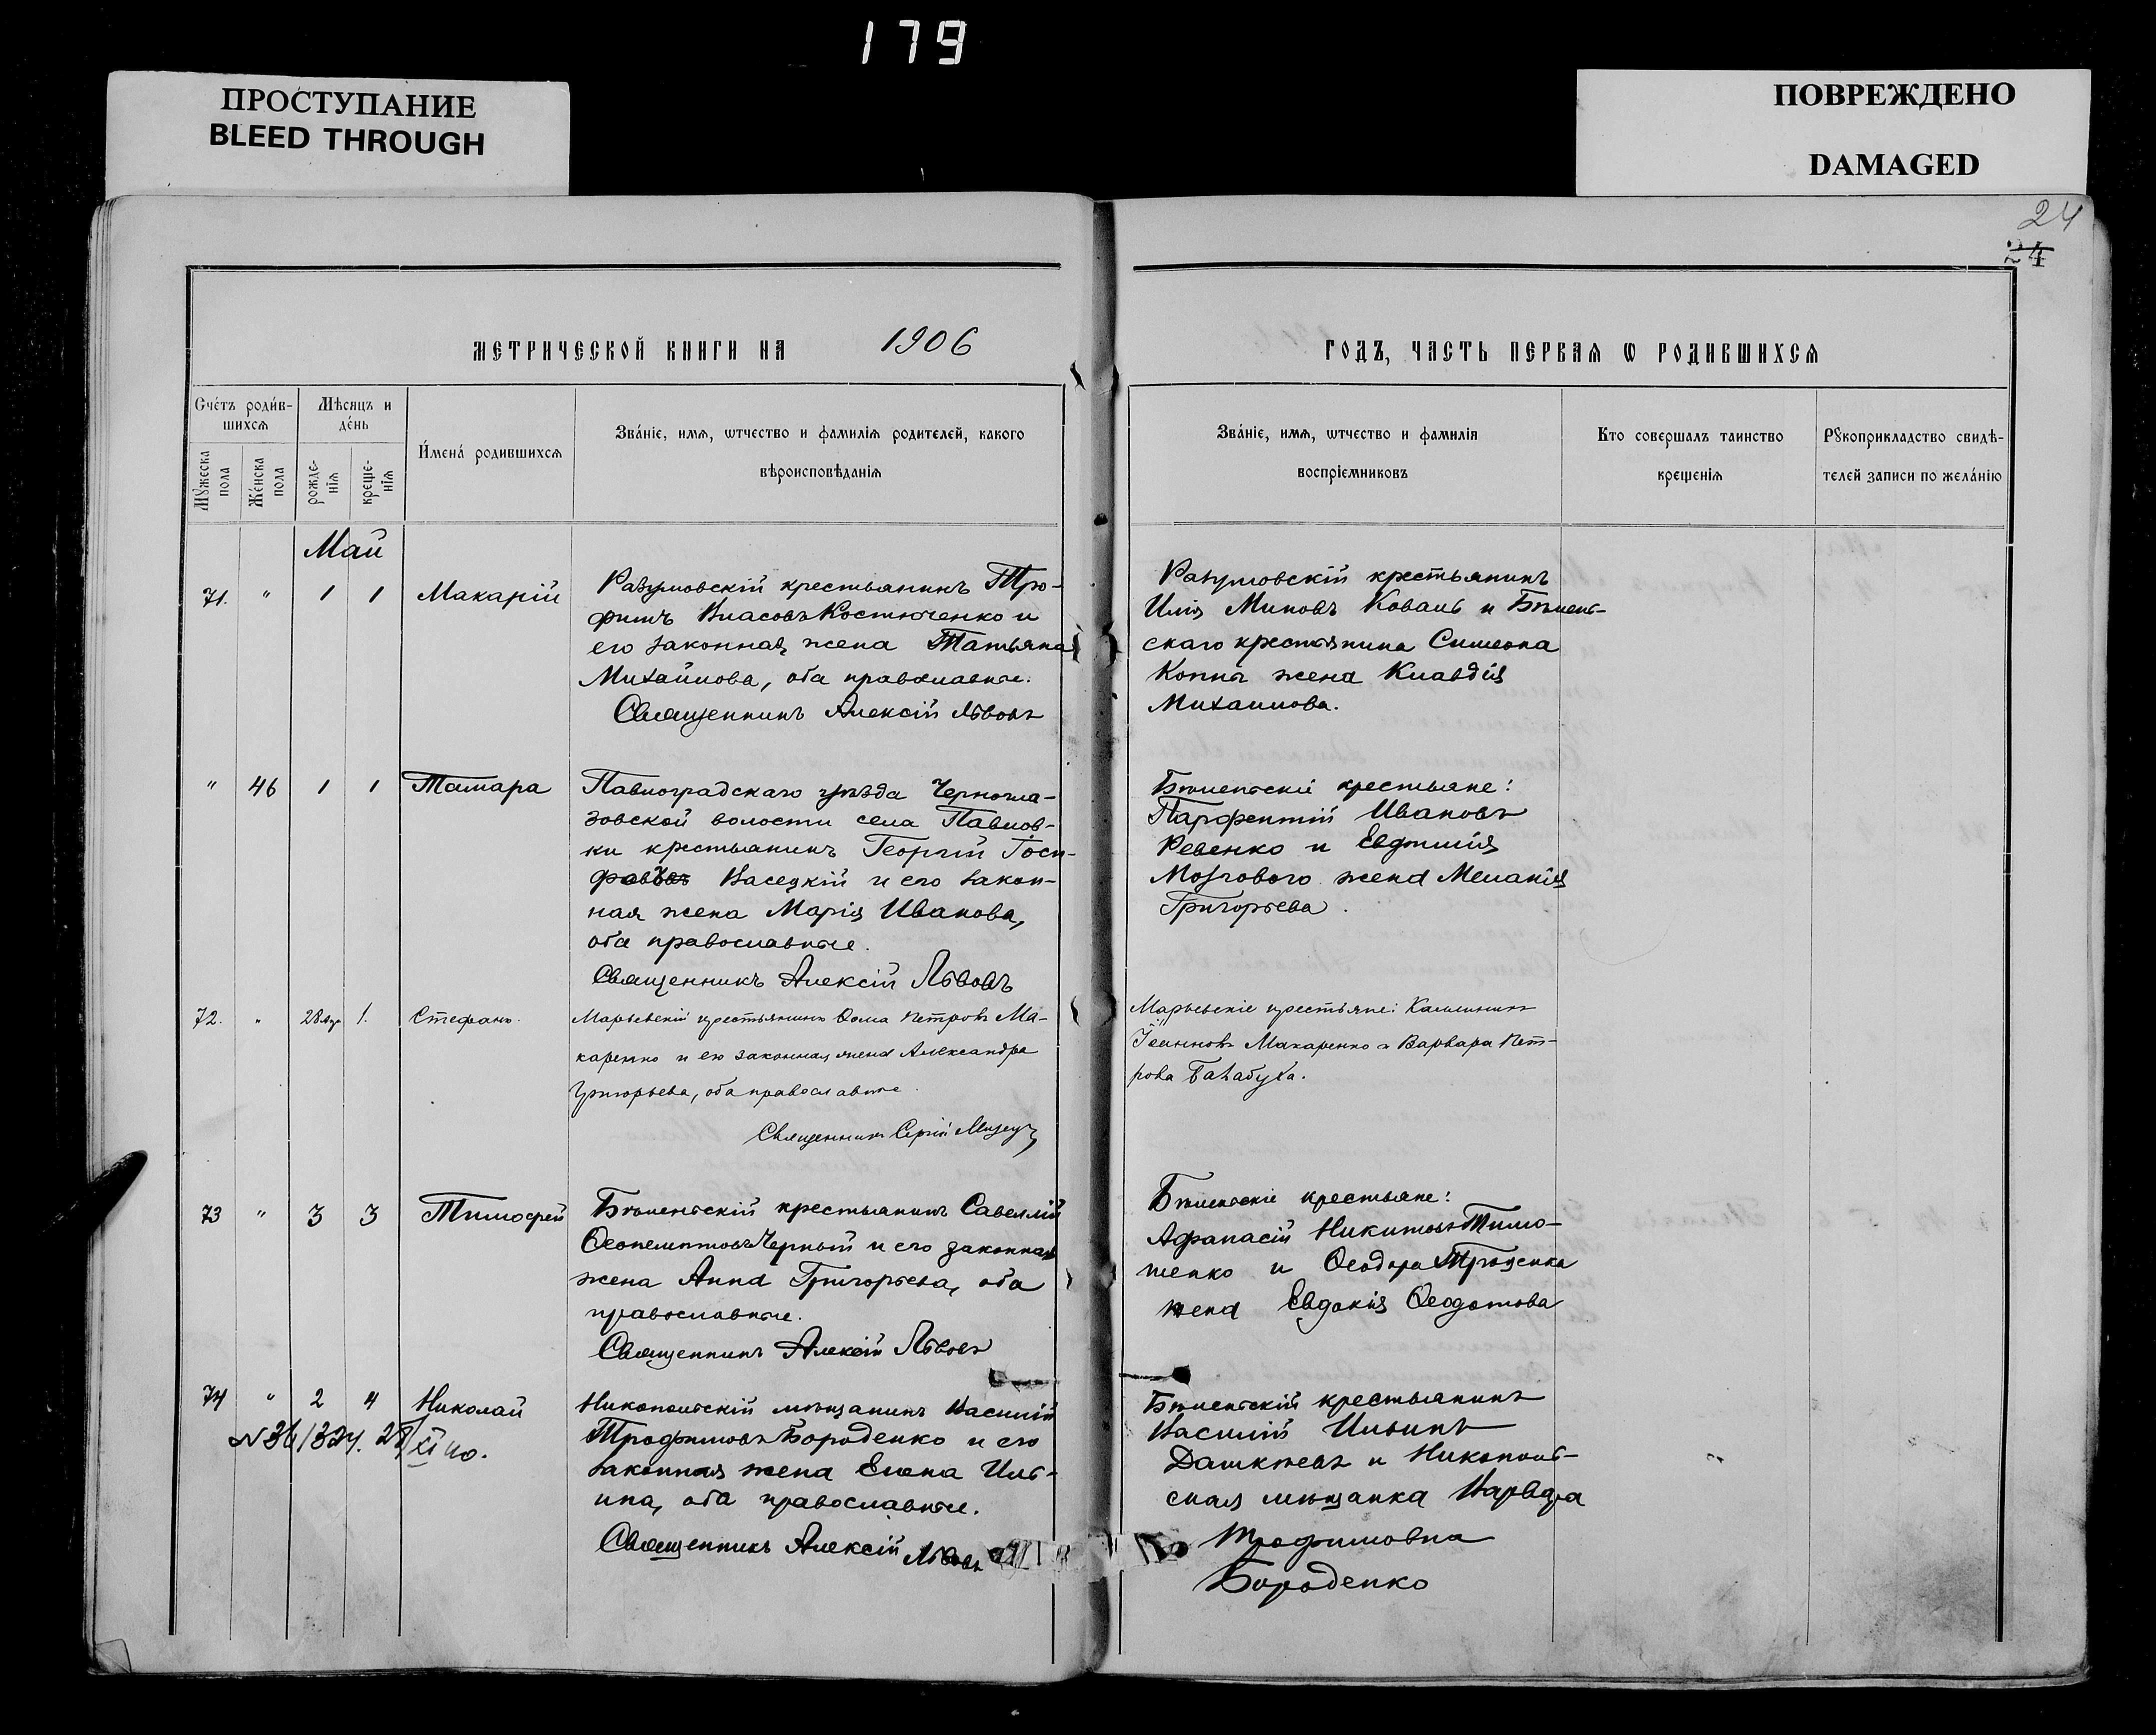 179
ПРОСТУПАНИЕ
BLEED THROUGH
ПОВРЕЖДЕНО
DAMAGED
24
24
МЕТРИЧЕСКОЙ КНИГИ НА 1906
ГОДЪ, ЧАСТЬ ПЕРВАЯ Ѡ РОДИВШИХСѦ
Счетъ родив-
шихсѧ
Мѣсяцъ и
день
Мужеска
пола
Женска
пола
рожде-
нїѧ
креще-
нїѧ
Имена родившихсѧ
Званїе, имѧ, ѡтчество и фамилїѧ родителей, какого
вѣроисповѣданїѧ
Званїе, имѧ, ѡтчество и фамилїѧ
воспрїемниковъ
Кто совершалъ таинство
крещенїѧ
Рукоприкладство свидѣ-
телей записи по желанїю
Май
71. " 1 1 Макарій
Разумовскій крестьянинъ Тро-
фимъ Власовъ Костюченко и
его законная жена Татьяна
Михайлова, оба православные.
Священникъ Алексій Львовъ
Разумовскій крестьянинъ
Илія Миновъ Коваль и Бѣлень-
скаго крестьянина Симеона
Коппа жена Клавдія
Михаилова.
" 46 1 1 Тамара
Павлоградскаго уѣзда Черногла-
зовской волости села Павлов-
ки крестьянинъ Георгій
Васецкій и его закон-
ная жена Марія Иванова,
оба православные.
Священникъ Алексій Львовъ
Бѣленьскіе крестьяне:
Парфентій Ивановъ
Ревенко и Евфимія
Мозгового жена Меланія
Григорьева.
72. " 28 Апр 1. Стефанъ.
Марьевскій крестьянинъ Ѳома Петровъ Ма-
каренко и его законная жена Александра
Григорьева, оба православные.
Священникъ Сергій
Марьевскіе крестьяне: Каллиникъ
Іоанновъ Макаренко и Варвара Пет-
рова Балабуха.
73 " 3 3 Тимофей
Бѣленьскій крестьянинъ Савеллій
Ѳеопемптовъ Черный и его законная
жена Анна Григорьева, оба
православные.
Священникъ Алексій Львовъ
Бѣленьскіе крестьяне:
Афанасій Никитовъ Тимо-
шенко и Ѳеодора Троценка
жена Евдокія Ѳеодотова
74 " 2 4 Николай
N 36/324. 28/XI 40.
Никопольскій мѣщанинъ Василій
Трофимовъ Бороденко и его
законная жена Елена Иль-
ина, оба православные.
Священникъ Алексій Львовъ
Бѣленьскій крестьянинъ
Василій Ильинъ
Дашкѣевъ и Никополь-
ская мѣщанка Варвара
Трофимовна
Бороденко